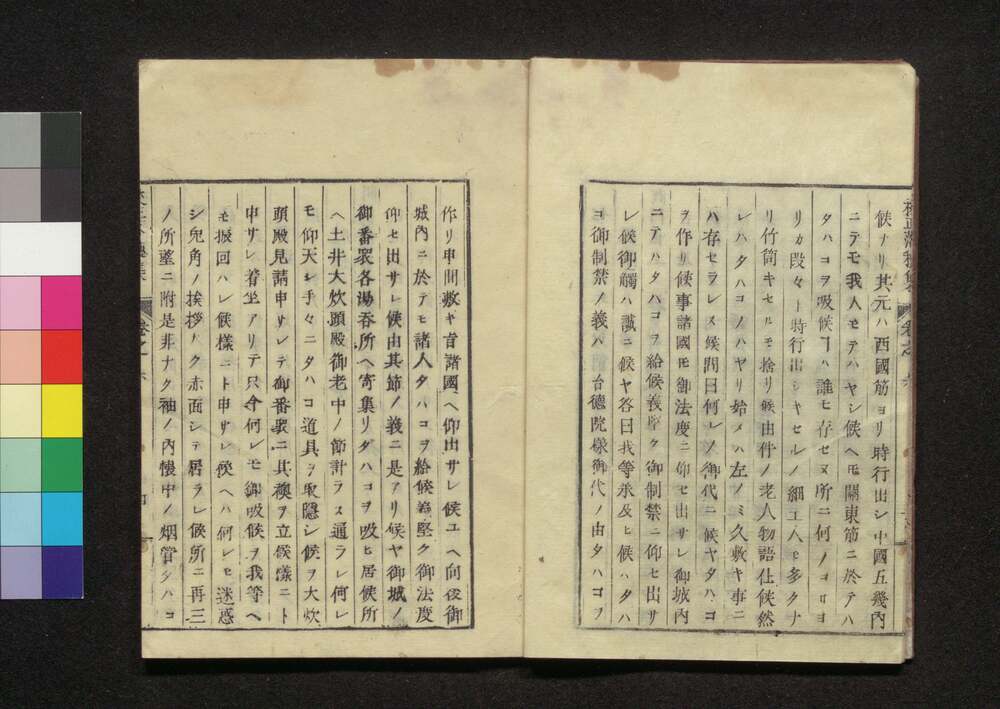 候ナリ其元ハ西國筋ヨリ時行出シ中國五幾内
ニテモ我人モテハヤシ候ヘモ關東筋ニ於テハ
タハコヲ吸候ヿハ誰モ存セヌ所ニ何ノコロヨ
リカ段々ト時行出シキセルノ細工人ヒ多クナ
リ竹筒キセルモ捨リ候由件ノ老人物語仕候然
レハタハコノハヤリ始メハ左ノミ久敷キ事ニ
ハ存セラレス候問曰何レノ御代ニ候ヤタハコ
ヲ作リ候事諸國モ御法度ニ仰セ出サレ御城内
ニテハタハコヲ給候義堅ク御制禁ニ仰セ出サ
レ候御觸ハ誠ニ候ヤ答曰我等承及ヒ候ハタハ
コ御制禁ノ義ハ 台德院樣御代ノ由タハコヲ
作リ申間敷キ旨諸國ヘ仰出サレ候ユヘ向後御
城内ニ於テモ諸人タハコヲ給候義堅ク御法度
仰セ出サレ候由其節ノ義ニ是アリ候ヤ御城ノ
御番衆各湯呑所ヘ寄集リタハコヲ吸ヒ居候所
ヘ土井大炊頭殿御老中ノ節計ラス通ラレ何レ
モ仰天シ手々ニタハコ道具ヲ取隱シ候ヲ大炊
頭殿見請申サレテ御番衆ニ其襖ヲ立候樣ニト
申サレ着坐アリテ只今何レモ御吸候ヲ我等ヘ
モ振囘ハレ候樣ニト申サレ候ヘハ何レモ迷惑
シ兎角ノ挨拶ナク赤面シテ居ラレ候所ニ再三
ノ所望ニ附是非ナク袖ノ内懷中ノ烟管タハコ